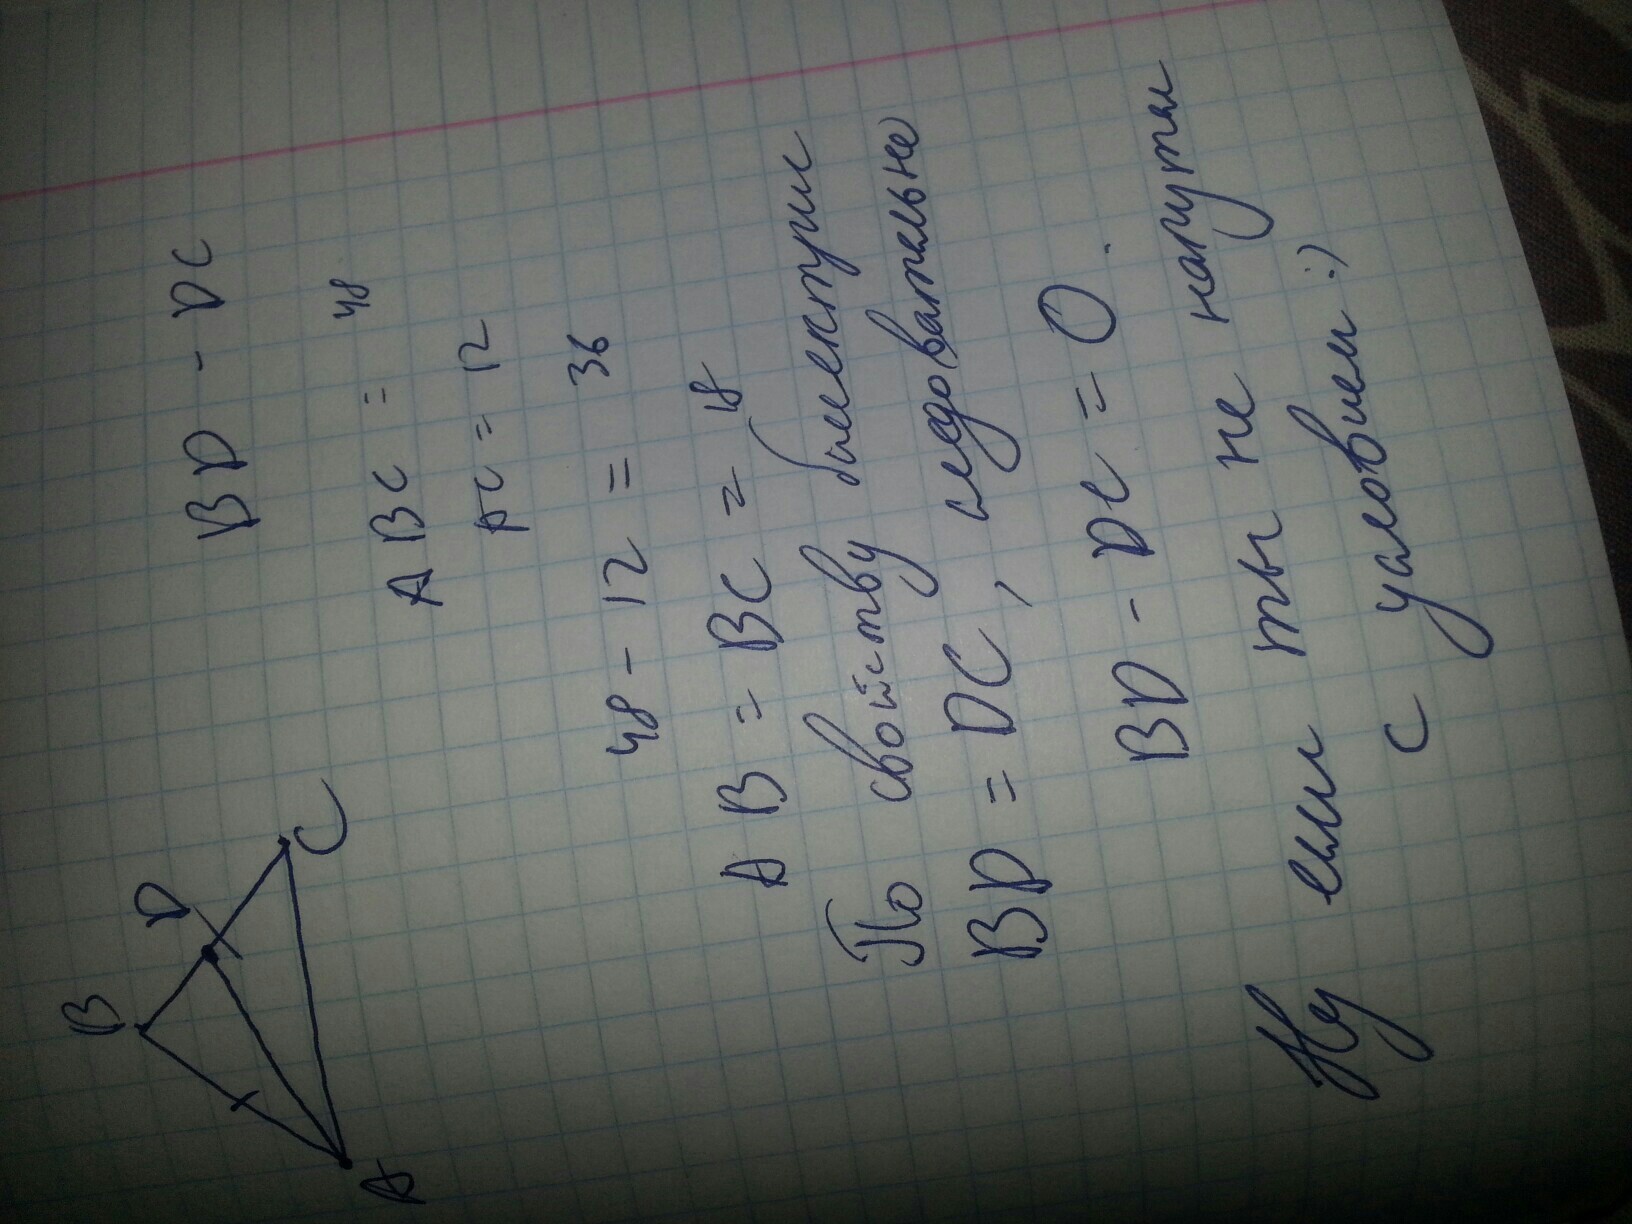 B
D
C
A
BD - DC
ABC = 48
AC = 12
48 - 12 = 36
AB = BC = 18
По свойству биссектрис
BD = DC, следовательно
BD - DC = 0.
Ну если ты не напутал
с условием :)